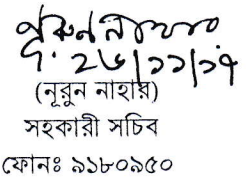 ২৬/১১/১৭
(নূরুন নাহার)
সহকারী সচিব
ফোনঃ ৯১৮০৯৫০